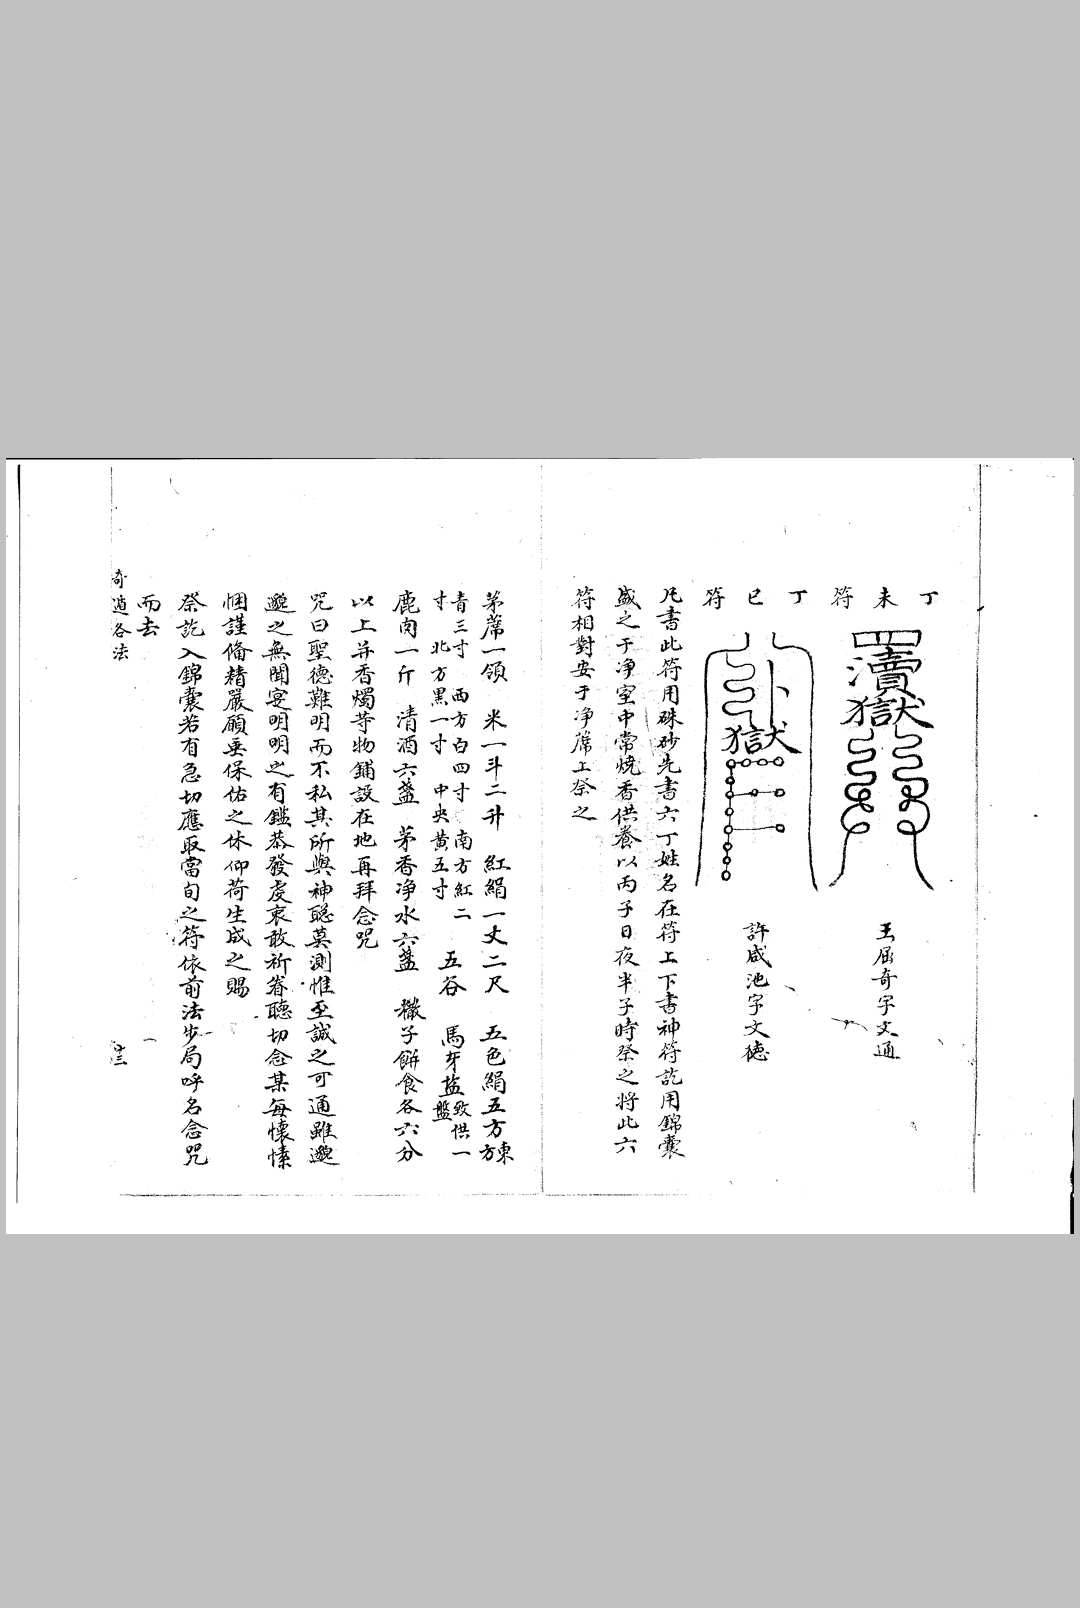 丁未符
四瀆獄
王屈奇字文通
丁巳符
獄
許咸池字文德
凡書此符用硃砂先書六丁姓名在符上下書神符訖用錦囊
盛之于净室中常燒香供養以丙子日夜半子時祭之将此六
符相對安于净席上祭之
茅蓆一領　米一斗二升　紅絹一丈二尺　五色絹五方東方
青三寸　西方白四寸　南方紅二
寸　北方黑一寸　中央黄五寸　五谷　馬牙盐致供一盤
鹿肉一斤　清酒六盏　茅香净水六盏　糤子餅食各六分
以上并香燭等物鋪設在地再拜念咒
咒曰聖德難明而不私其所與神聡莫測惟至誠之可通雖邈
邈之無聞寔明明之有鑑恭發虔衷敢祈眷聴切念某每懐愫
悃謹俻精嚴願垂保佑之休仰荷生成之賜
祭訖入錦囊若有急切應取當旬之符依前法步局呼名念咒
而去
奇遁各法
十三